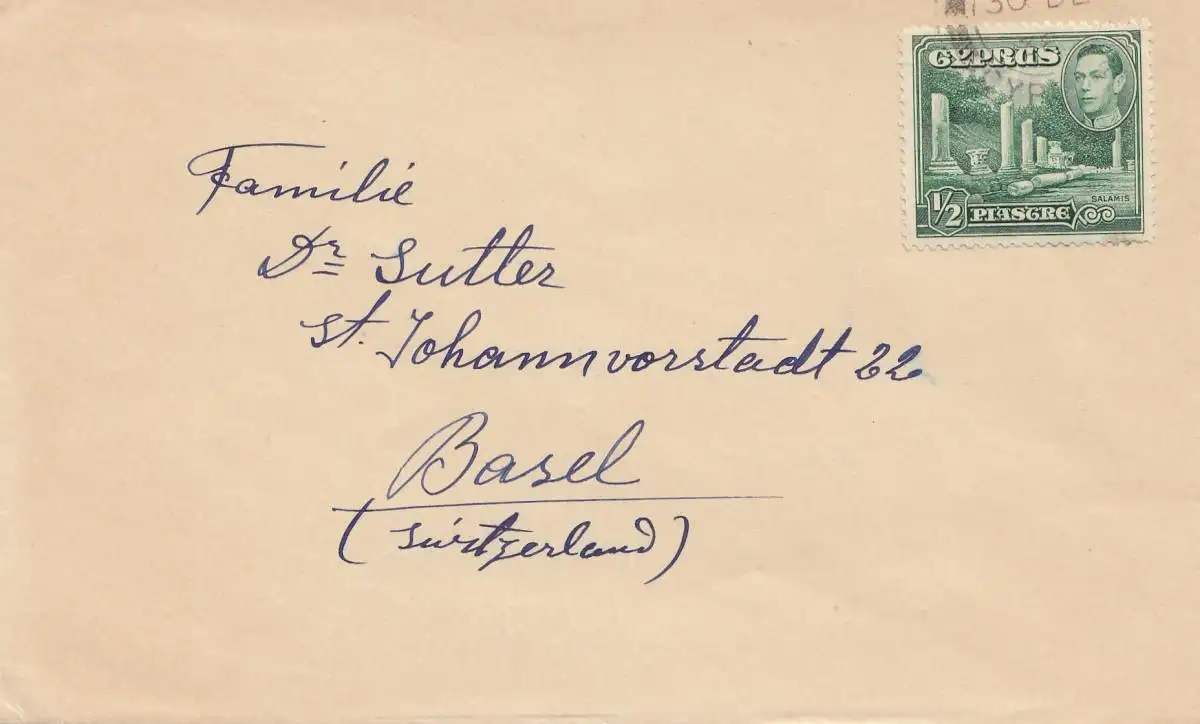 30 DE
CYPRUS
CYPR
SALAMIS
1/2 PIASTRE
Familie
Dr Sutter
St. Johannvorstadt 22
Basel
(Switzerland)